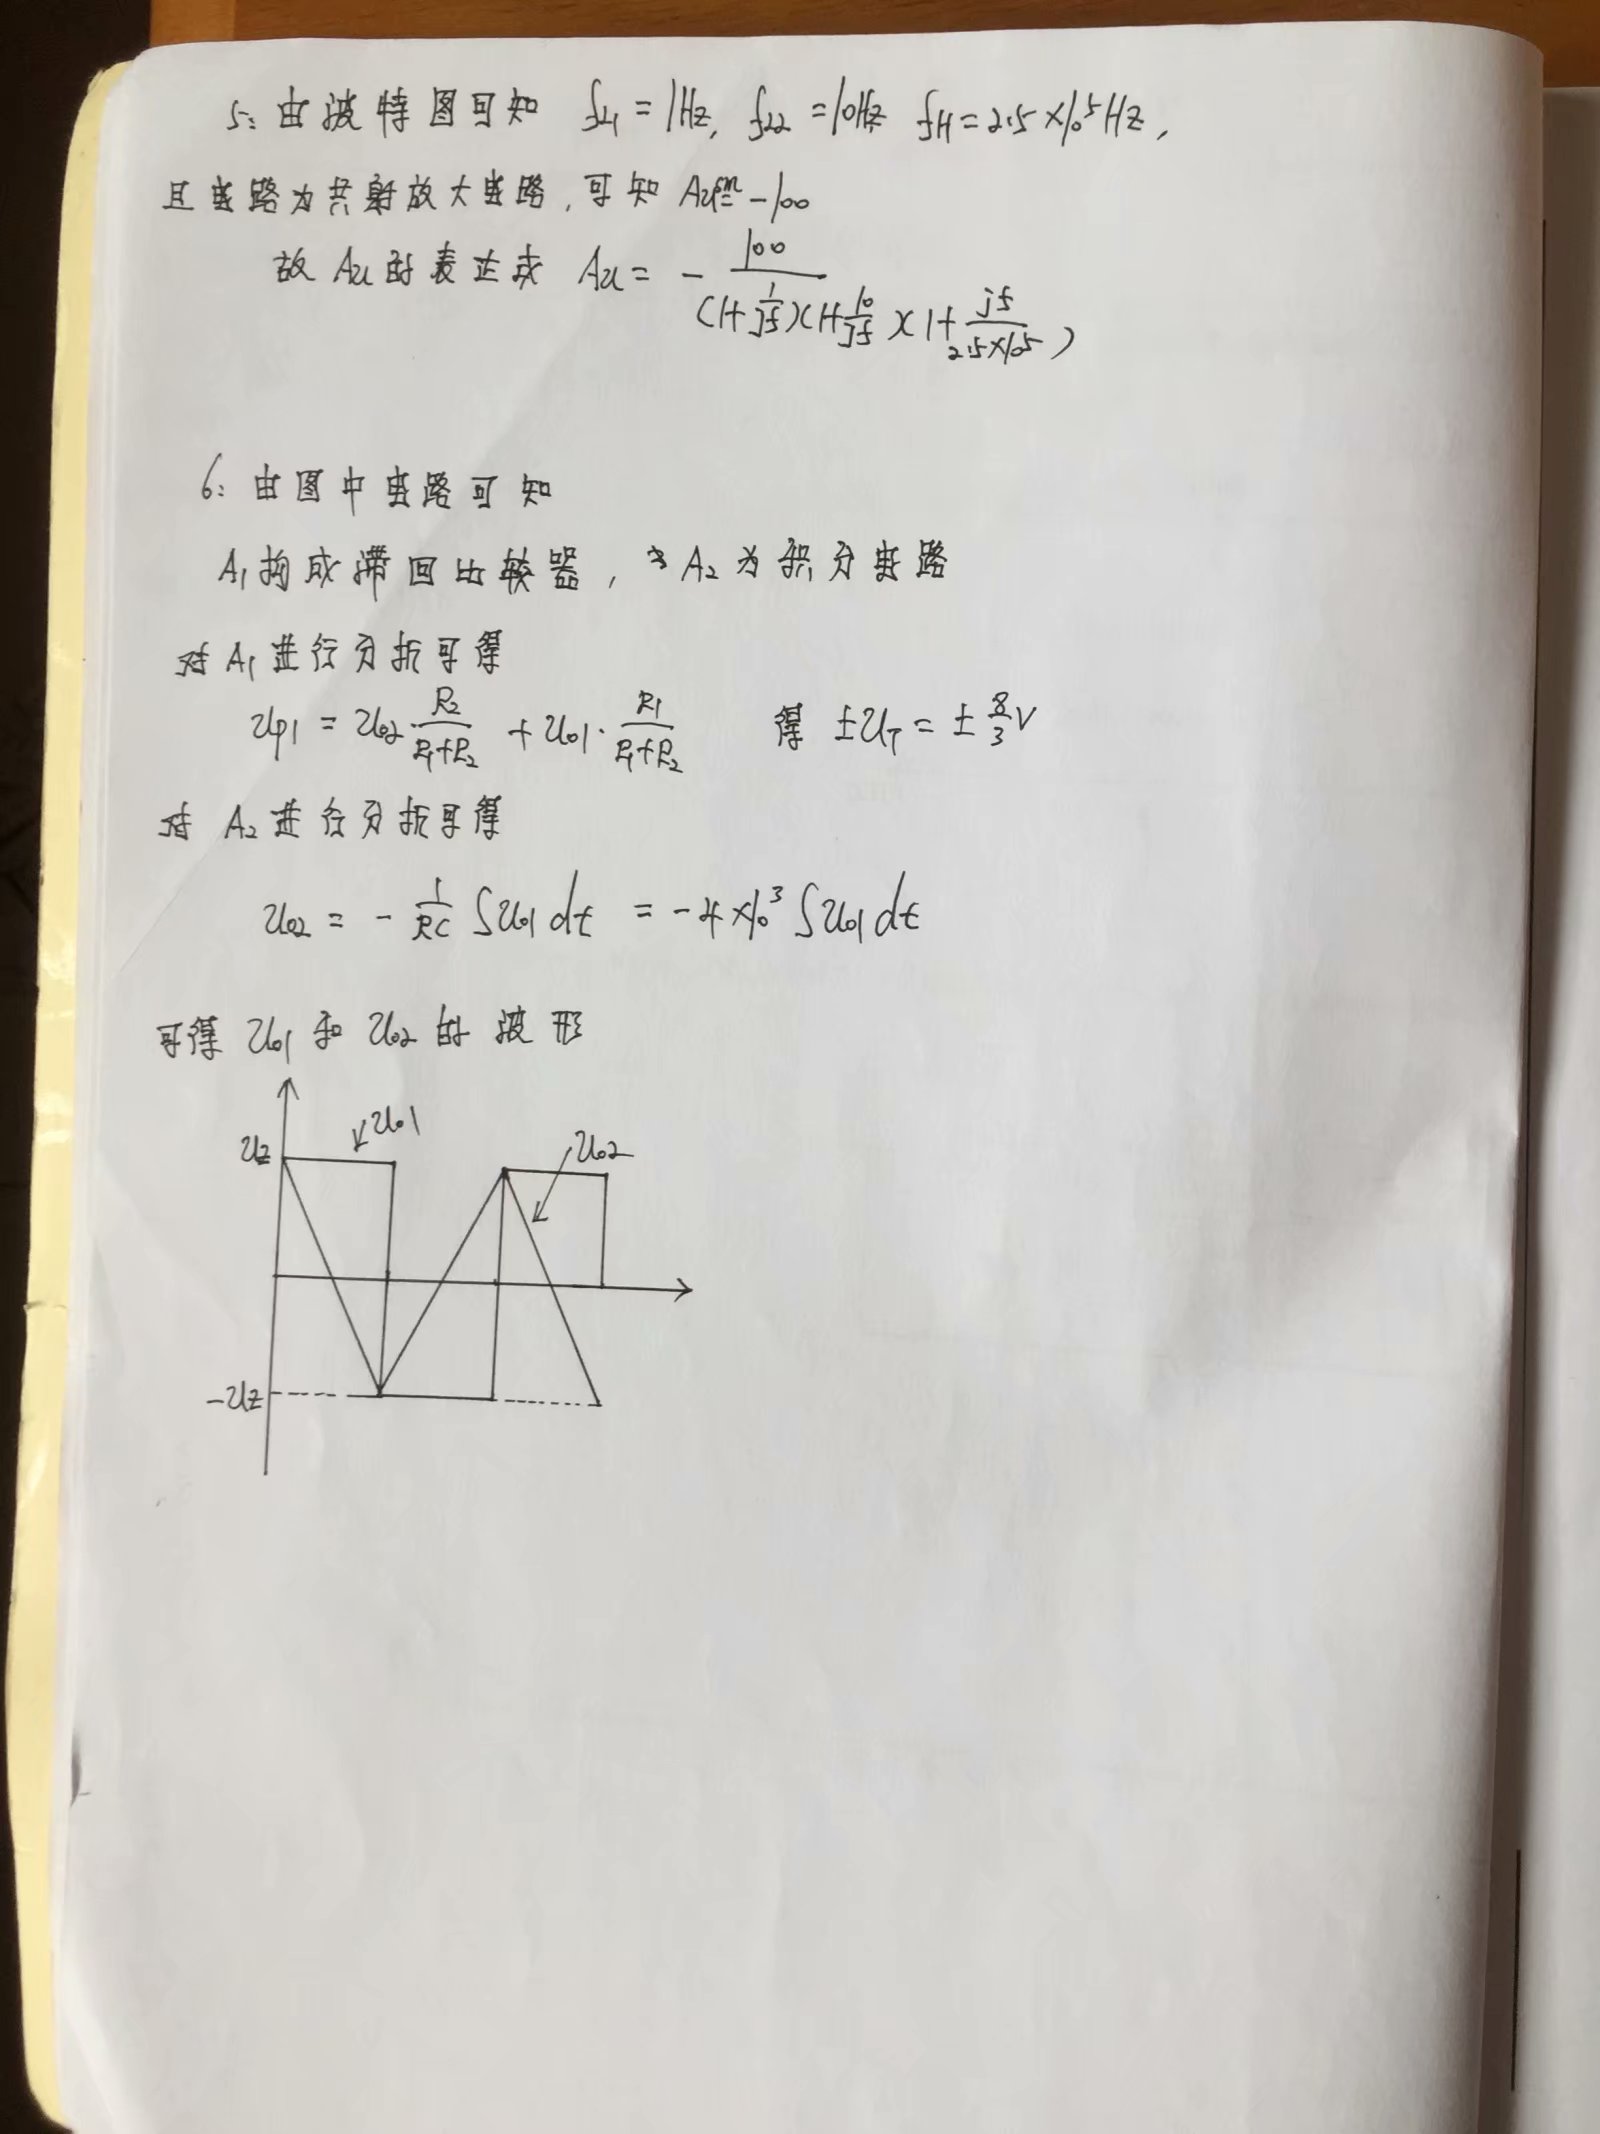 5: 由波特图可知 fL1 = 1Hz, fL2 = 10Hz fH = 2.5×10^5 Hz,
且电路为共射放大电路,可知 Aum = -100
故 Au 的表达式 Au = - 100 / (1+ 1/jf)(1+ 10/jf)(1+ jf/2.5×10^5)
6: 由图中电路可知
A1构成滞回比较器, A2为积分电路
对 A1 进行分析可得
up1 = uo2 · R2/(R1+R2) + uo1 · R1/(R1+R2) 得 ±UT = ± 8/3 V
对 A2 进行分析可得
uo2 = - 1/RC ∫uo1 dt = -4×10^3 ∫uo1 dt
可得 uo1 和 uo2 的波形
uo1
Uz
uo2
-Uz